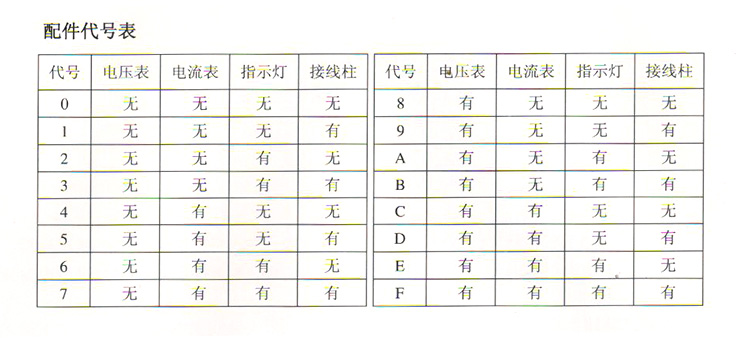 配件代号表
代号 电压表 电流表 指示灯 接线柱 代号 电压表 电流表 指示灯 接线柱
0 无 无 无 无 8 有 无 无 无
1 无 无 无 有 9 有 无 无 有
2 无 无 有 无 A 有 无 有 无
3 无 无 有 有 B 有 无 有 有
4 无 有 无 无 C 有 有 无 无
5 无 有 无 有 D 有 有 无 有
6 无 有 有 无 E 有 有 有 无
7 无 有 有 有 F 有 有 有 有